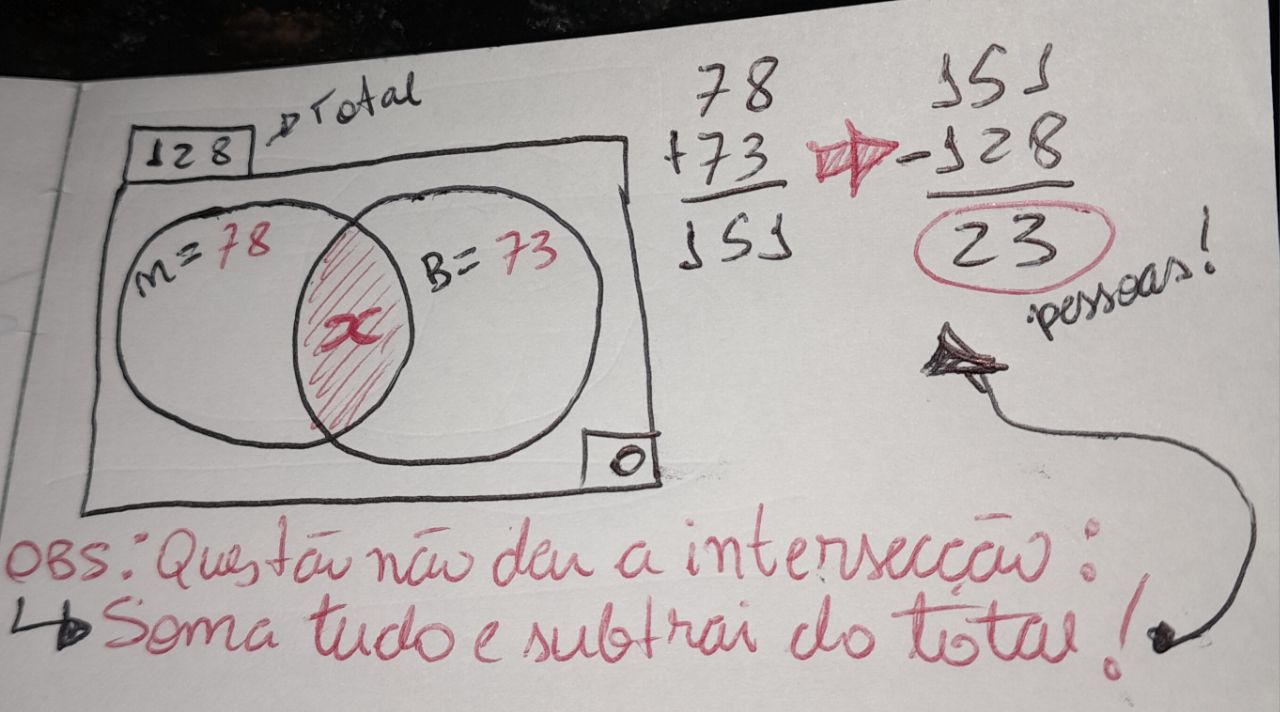 128 Total
M = 78
B = 73
x
0
78
+73
151
151
-128
23
pessoas!
OBS: Questão não deu a intersecção:
Soma tudo e subtrai do total!